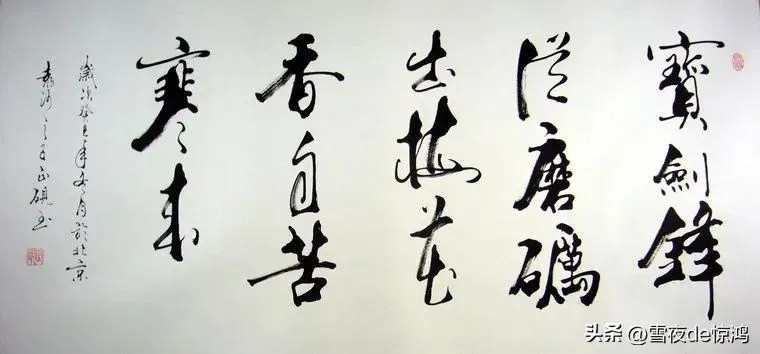 寶劍鋒
從磨礪
出梅花
香自苦
寒來
歲次癸巳年冬月於北京
头条 @雪夜de惊鸿